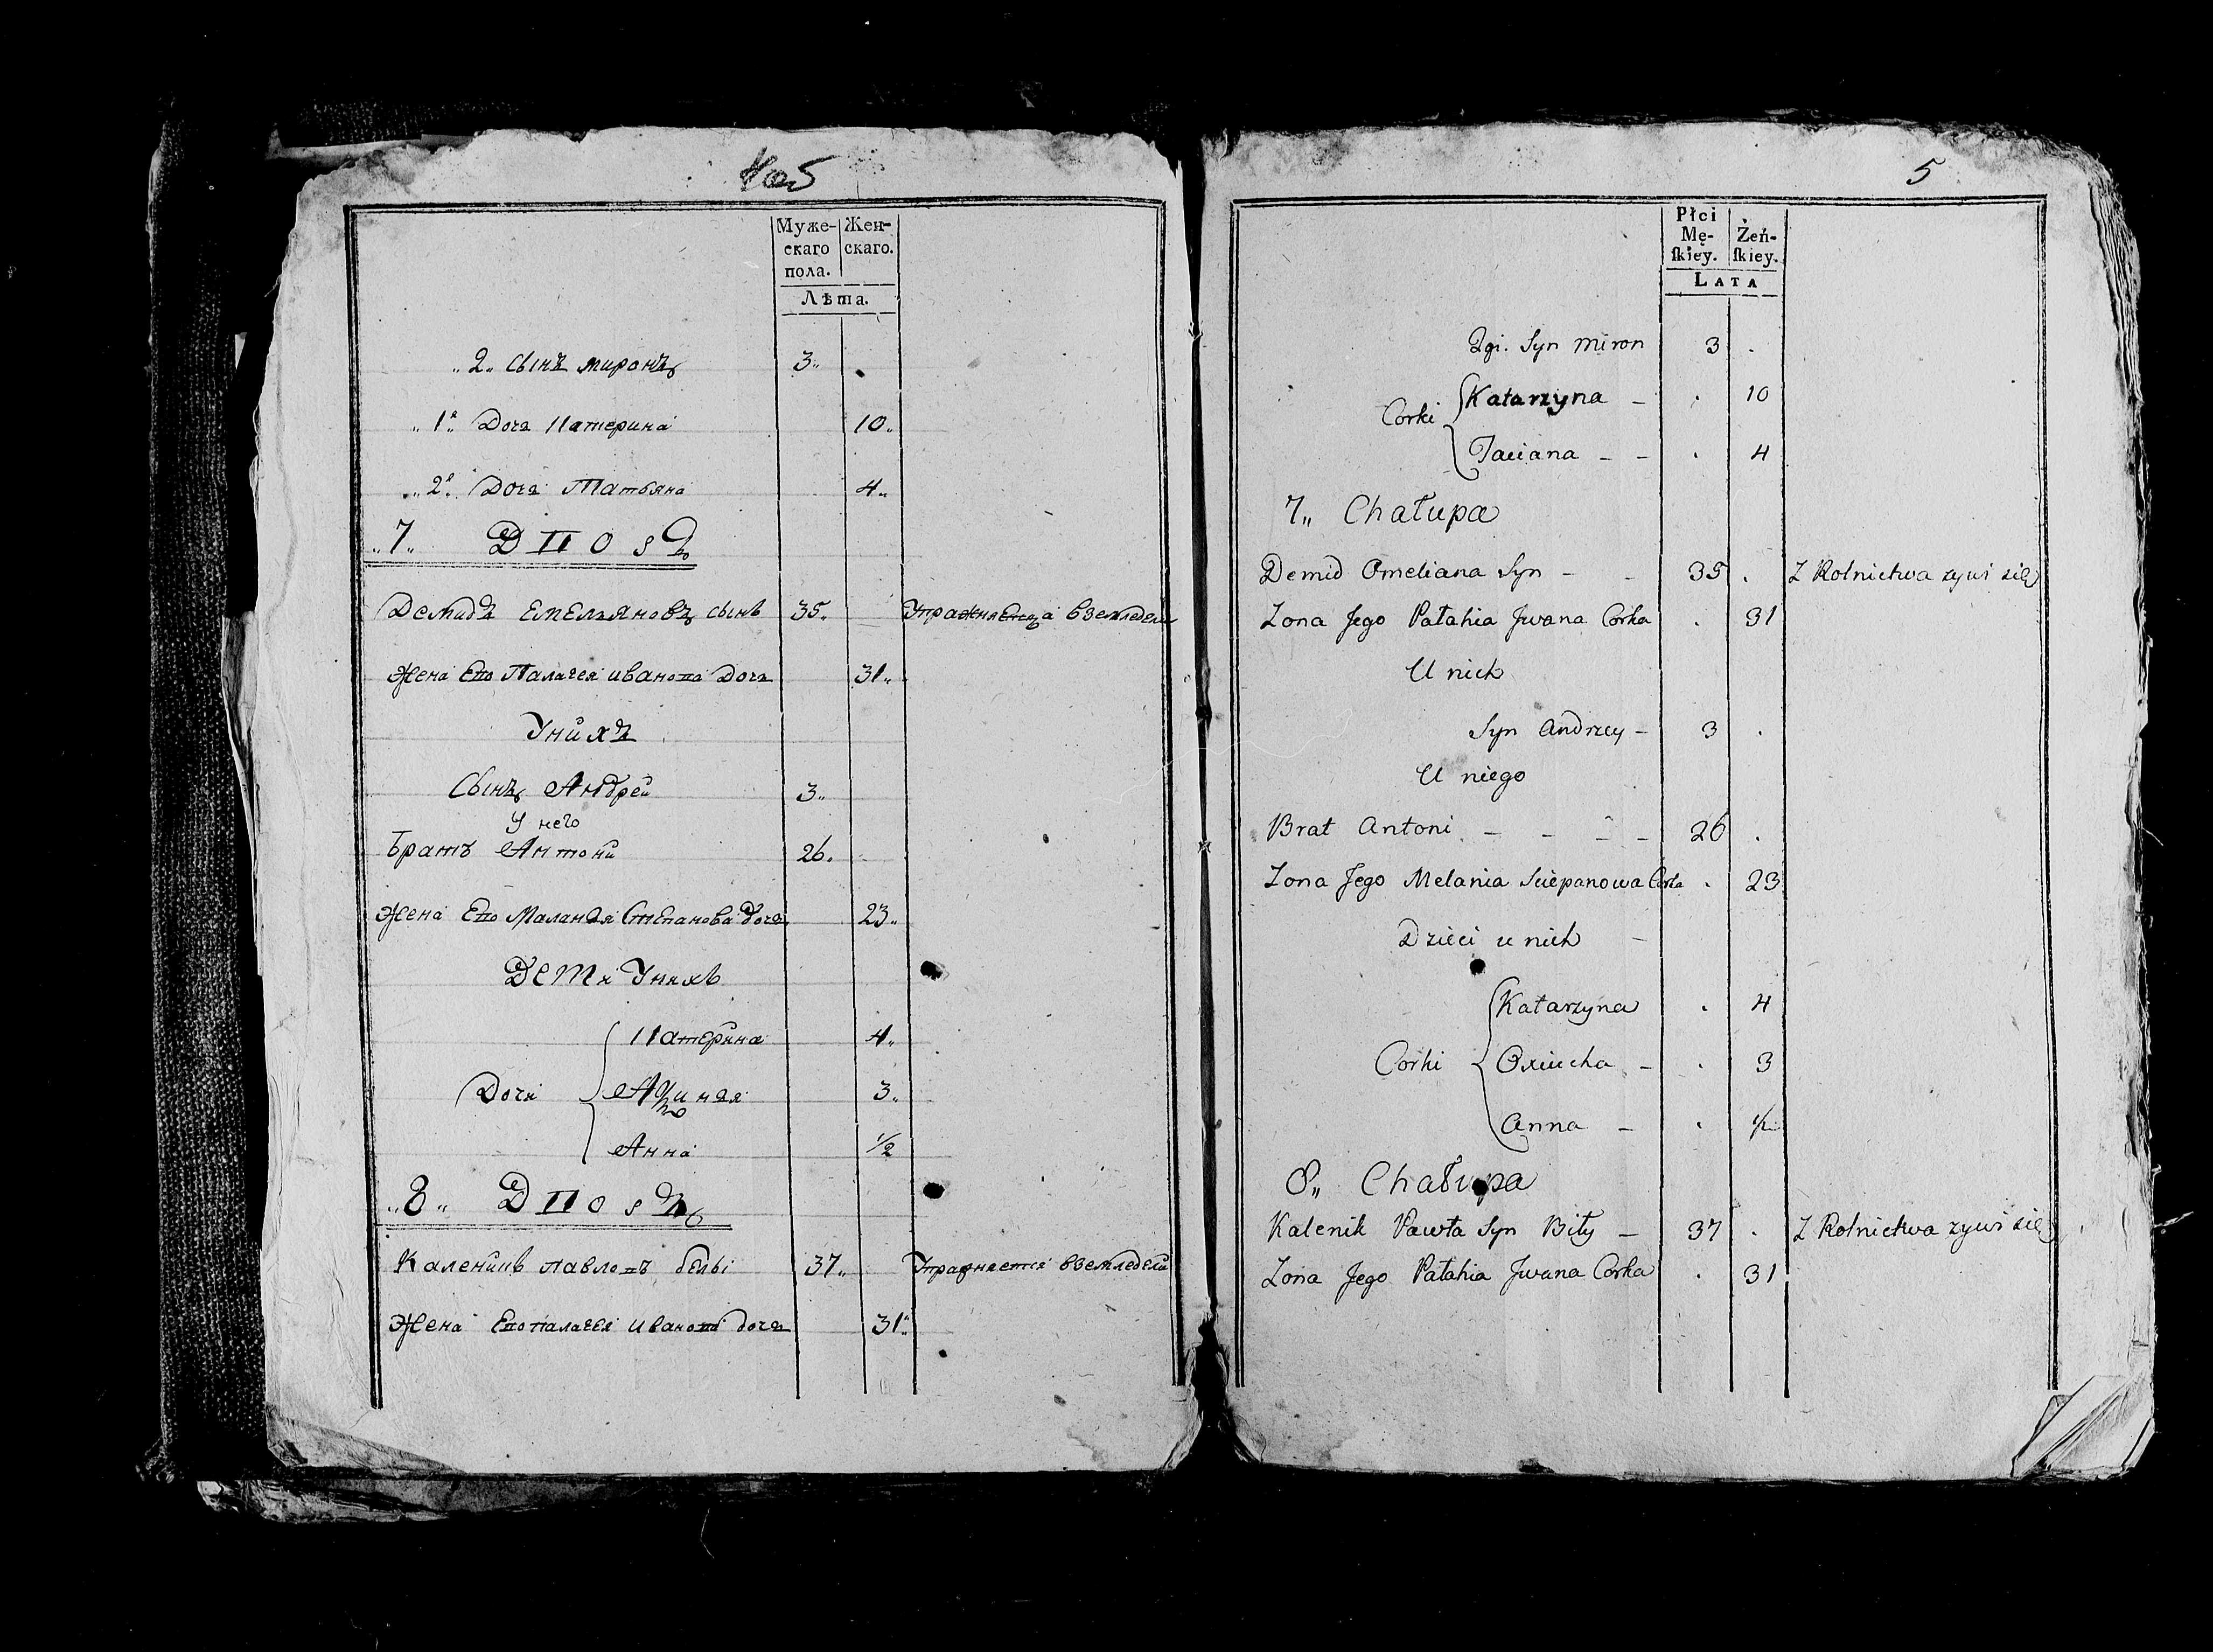 Муже-
скаго
пола.
Жен-
скаго.
Лѣта.
„2„ сынъ миронъ 3„
„1я„ Дочъ Катерина 10„
„2я„ Дочъ Татьяна 4„
„7„ Дворъ
Демидъ Емельяновъ сынъ 35„ Упражняетца вземледели
Жена Ево Палагея иванова Дочъ 31„
Унихъ
Сынъ Андрей 3„
У него
Братъ Антони 26„
Жена Ево Маланья Степанова дочъ 23„
Дети Унихъ
Катерина 4„
Дочи
Анна 1/2
„8„ Дворъ
Каленикъ павловъ белы 37„ Упражняется вземледели
Жена Ево палагея иванова дочъ 31„
5
Płci
Mę-
ſkiey.
Żeń-
ſkiey.
LATA
2gi. Syn Miron 3 .
Corki Katarzyna – . 10
Taciana – – . 4
7„ Chałupa
Demid Omeliana Syn – – 35 . Z Rolnictwa zywi się
Zona Jego Pałahia Jwana Corka . 31
U nich
Syn Andrzey – 3 .
U niego
Brat Antoni – – – – 26 .
Zona Jego Melania Sciepanowa Corka . 23
Dzieci u nich –
Katarzyna . 4
Corki Oxiucha – . 3
Anna – . 1/2
8„ Chałupa
Kalenik Pawła Syn Biły – 37 . Z Rolnictwa zywi się
Zona Jego Pałahia Jwana Corka . 31